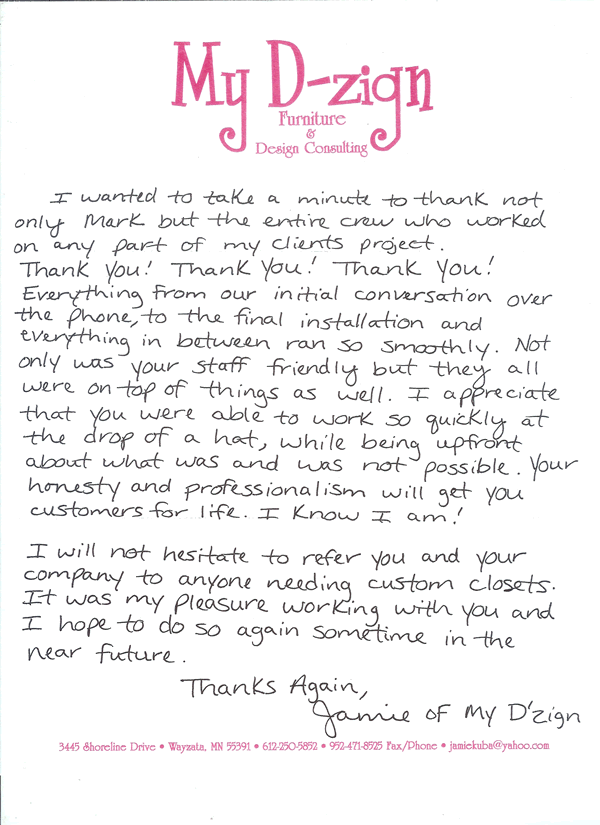 My D-zign
Furniture
&
Design Consulting
I wanted to take a minute to thank not
only Mark but the entire crew who worked
on any part of my clients project.
Thank you! Thank You! Thank You!
Everything from our initial conversation over
the phone, to the final installation and
everything in between ran so smoothly. Not
only was your staff friendly but they all
were on top of things as well. I appreciate
that you were able to work so quickly at
the drop of a hat, while being upfront
about what was and was not possible. Your
honesty and professionalism will get you
customers for life. I know I am!
I will not hesitate to refer you and your
company to anyone needing custom closets.
It was my pleasure working with you and
I hope to do so again sometime in the
near future.
Thanks Again,
Jamie of My D'zign
3445 Shoreline Drive • Wayzata, MN 55391 • 612-250-5852 • 952-471-8525 Fax/Phone • jamiekuba@yahoo.com